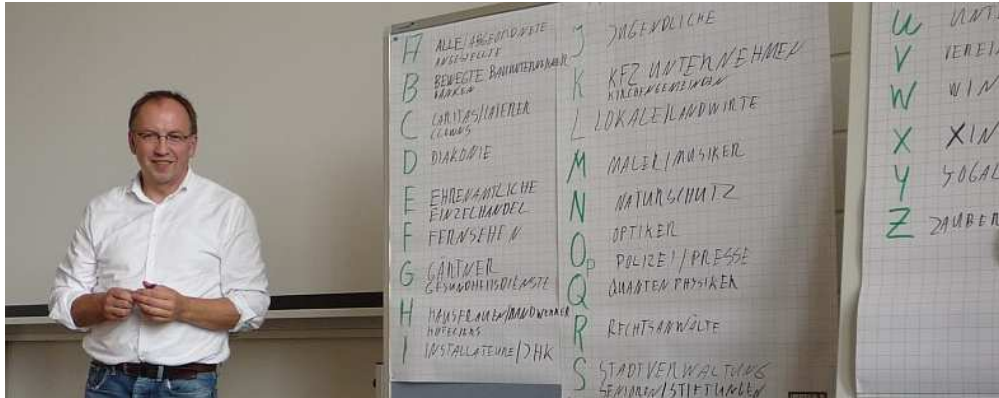 A ALLE/ABGEORDNETE
ANGESTELLTE
B BEWEGTE BAUUNTERNEHMER
BANKEN
C CARITAS/CATERER
CLOWNS
D DIAKONIE
E EHRENAMTLICHE
EINZELHANDEL
F FERNSEHEN
G GÄRTNER
GESUNDHEITSDIENSTE
H HAUSFRAUEN/HANDWERKER
HOTELIERS
I INSTALLATEURE/IHK
J JUGENDLICHE
K KFZ UNTERNEHMEN
KIRCHENGEMEINDEN
L LOKALE/LANDWIRTE
M MALER/MUSIKER
N NATURSCHUTZ
O OPTIKER
P POLIZEI/PRESSE
Q QUANTENPHYSIKER
R RECHTSANWÄLTE
S STADTVERWALTUNG
SENIOREN/STIFTUNGEN
U UNTE
V VEREIN
W WIN
X XIN
Y YOGAL
Z ZAUBER